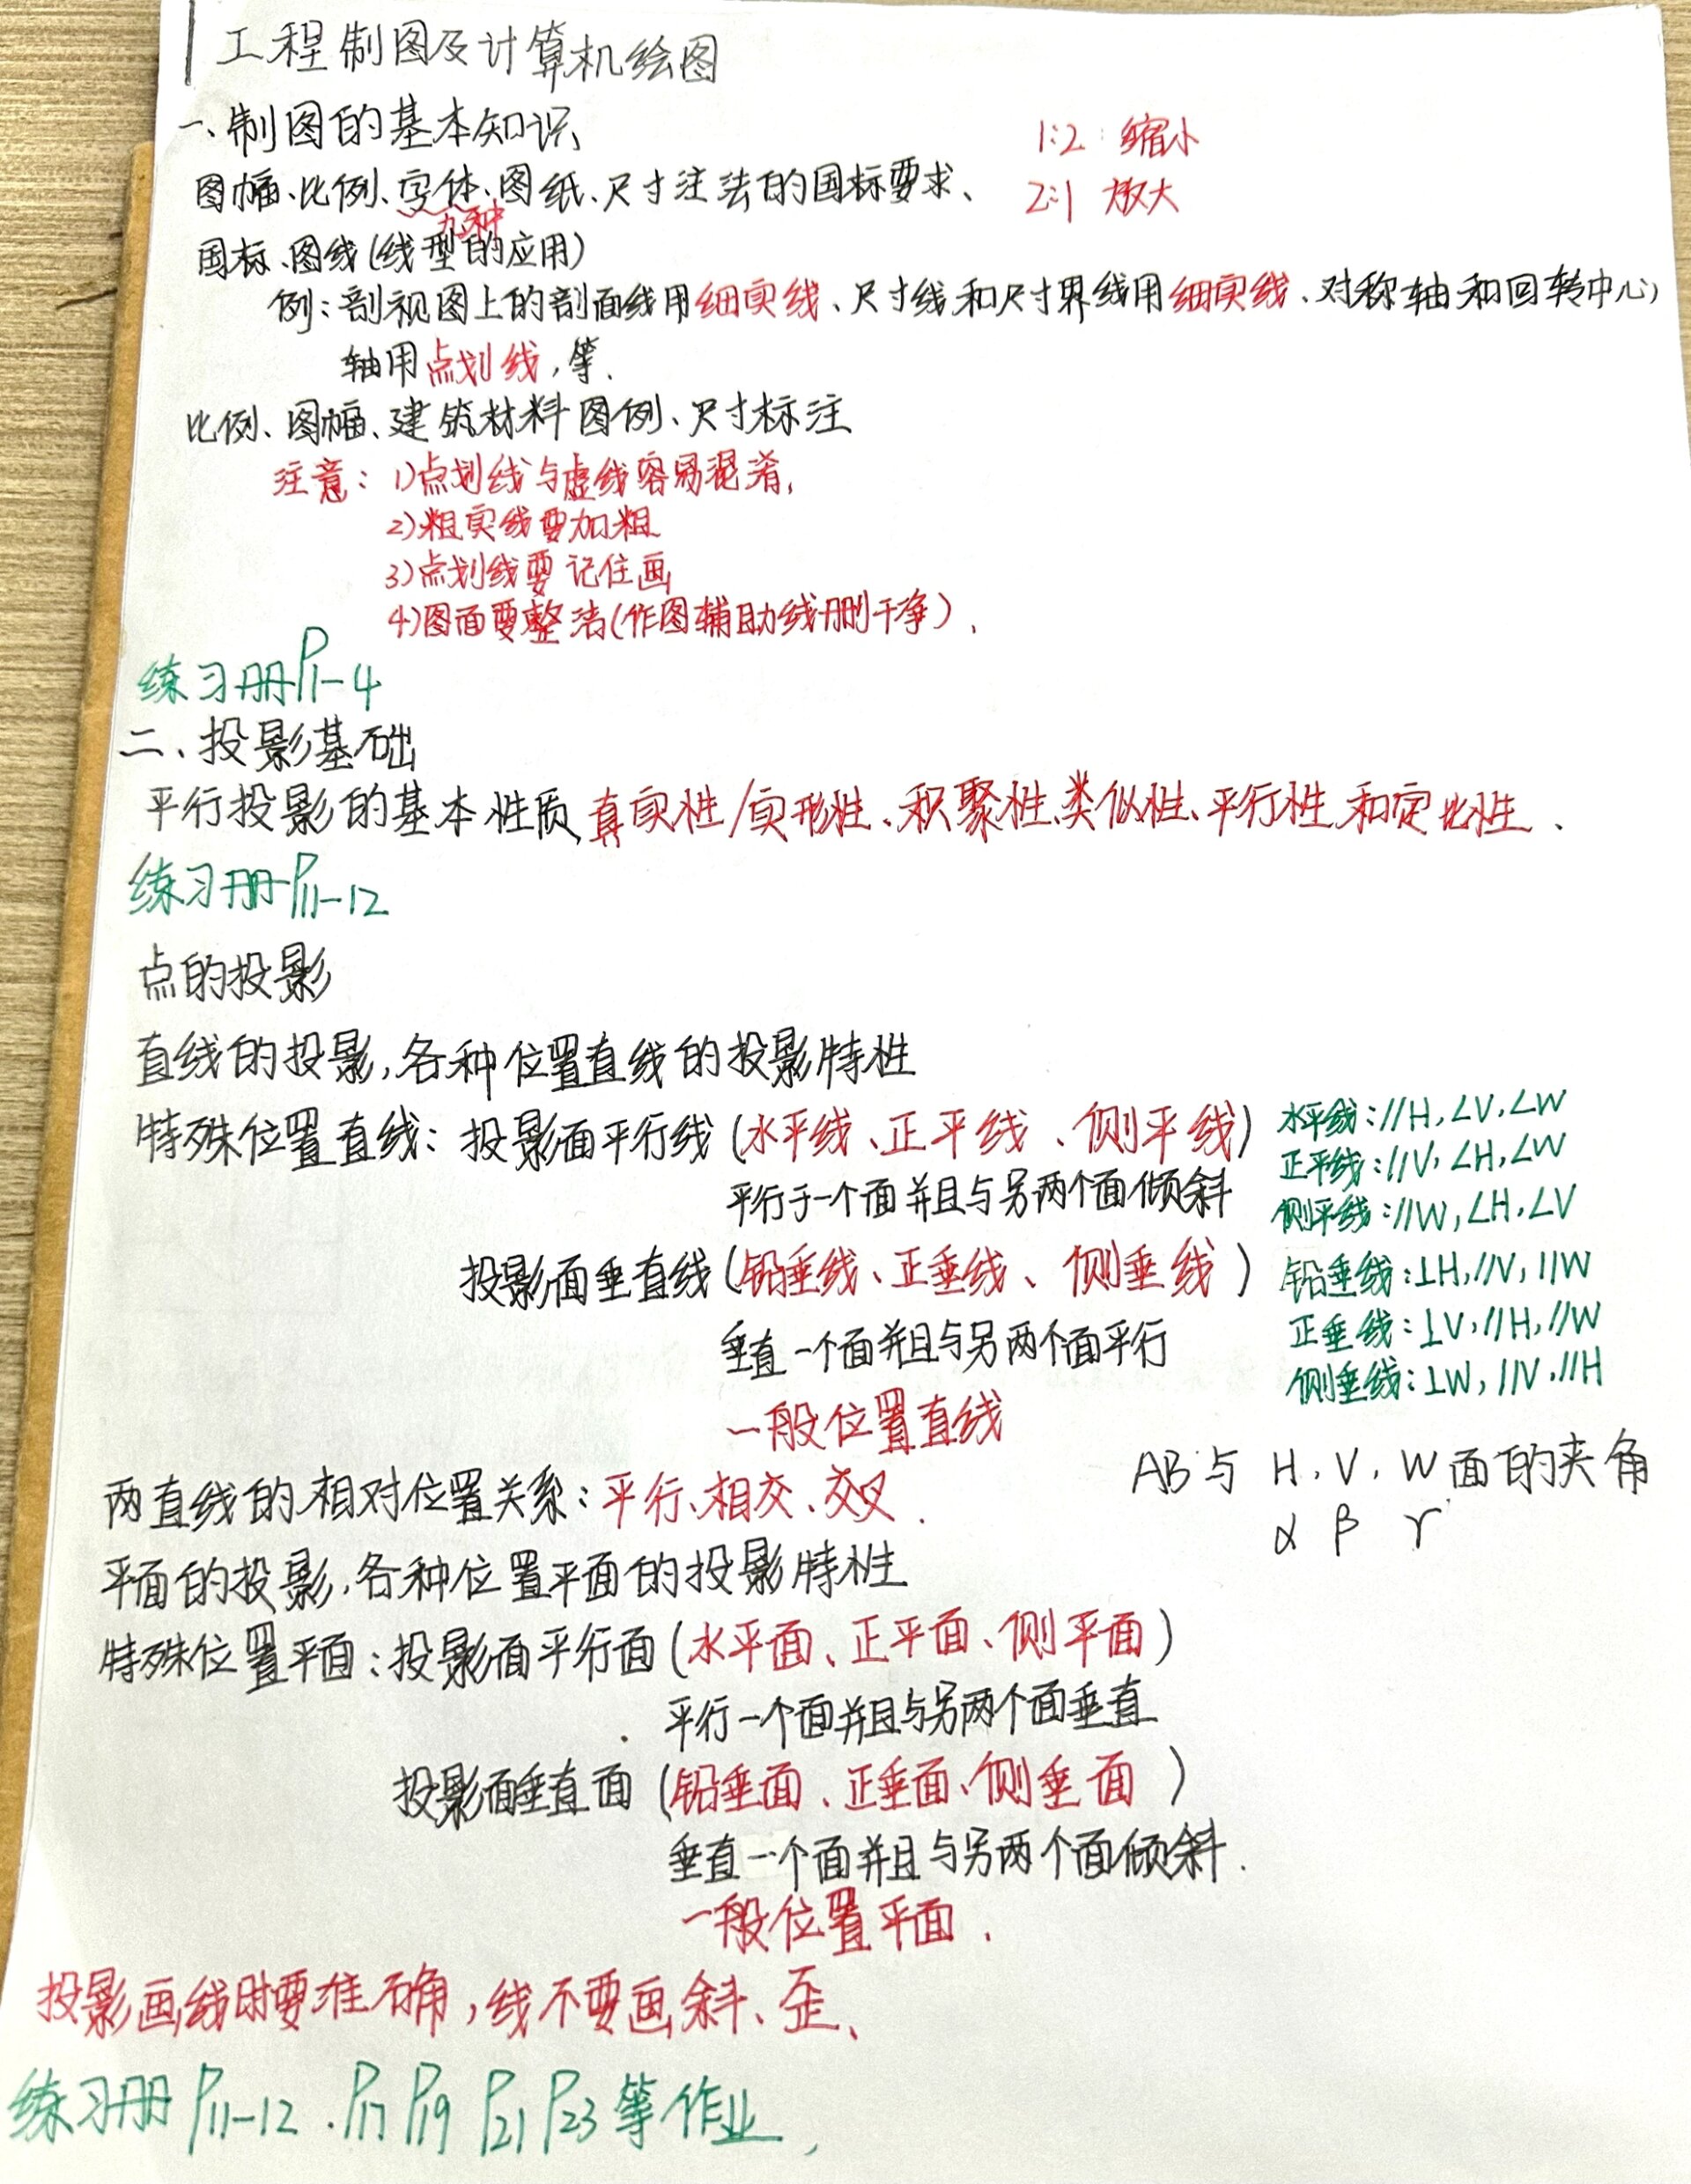 工程制图及计算机绘图
一、制图的基本知识
1:2 缩小
图幅、比例、字体、图纸、尺寸注法的国标要求、
2:1 放大
九种
国标、图线(线型的应用)
例:剖视图上的剖面线用细实线、尺寸线和尺寸界线用细实线、对称轴和回转中心
轴用点划线,等.
比例、图幅、建筑材料图例、尺寸标注
注意: 1)点划线与虚线容易混淆,
2)粗实线要加粗
3)点划线要记住画
4)图面要整洁(作图辅助线删干净).
练习册P1-4
二、投影基础
平行投影的基本性质,真实性/实形性、积聚性、类似性、平行性和定比性.
练习册P11-12
点的投影
直线的投影,各种位置直线的投影特性
特殊位置直线: 投影面平行线(水平线、正平线、侧平线) 水平线: //H, ∠V, ∠W
正平线: //V, ∠H, ∠W
平行于一个面并且与另两个面倾斜 侧平线: //W, ∠H, ∠V
投影面垂直线(铅垂线、正垂线、侧垂线) 铅垂线: ⊥H, //V, //W
正垂线: ⊥V, //H, //W
垂直一个面并且与另两个面平行 侧垂线: ⊥W, //V, //H
一般位置直线
AB与 H, V, W面的夹角
两直线的相对位置关系: 平行、相交、交叉.
α β γ
平面的投影,各种位置平面的投影特性
特殊位置平面: 投影面平行面(水平面、正平面、侧平面)
平行一个面并且与另两个面垂直
投影面垂直面(铅垂面、正垂面、侧垂面)
垂直一个面并且与另两个面倾斜.
一般位置平面.
投影画线时要准确,线不要画斜、歪、
练习册 P11-12. P17 P19 P21 P23等作业,